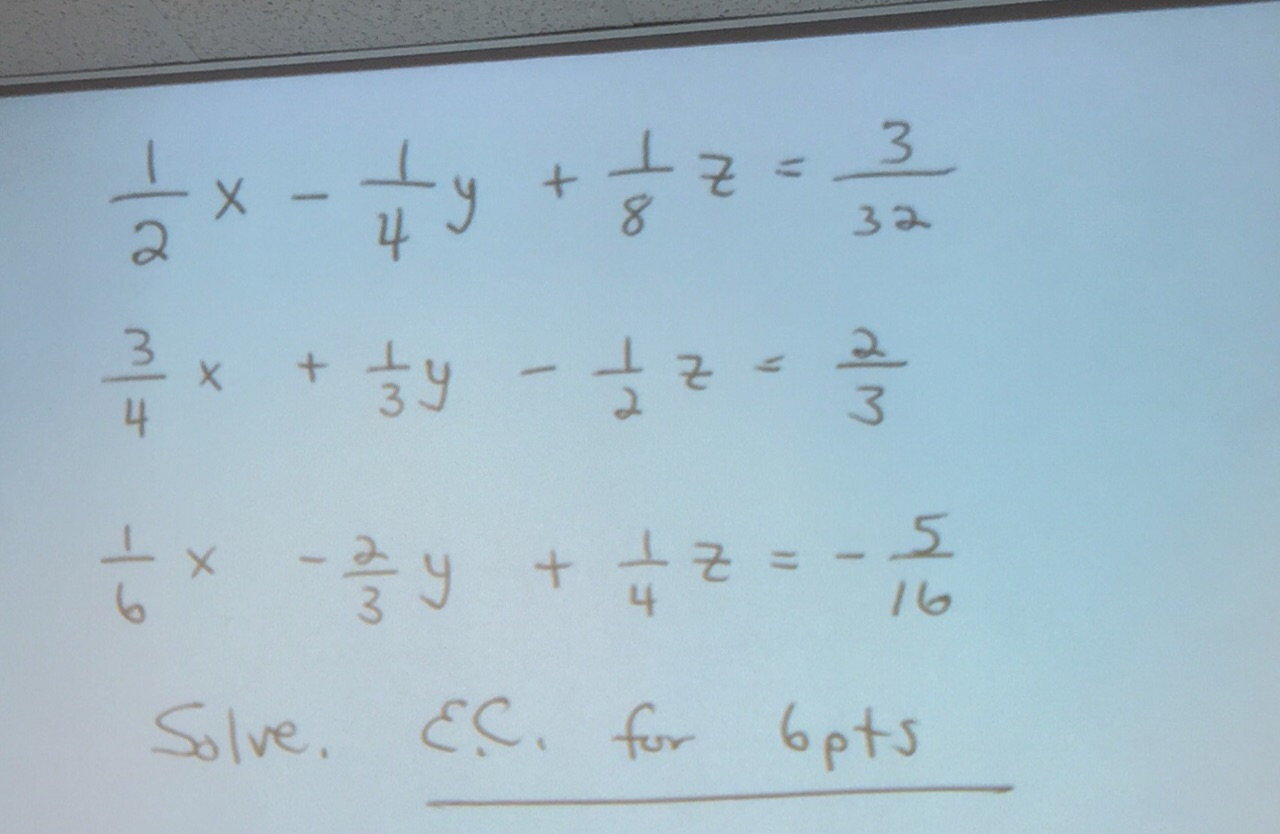 1/2 x - 1/4 y + 1/8 z = 3/32
3/4 x + 1/3 y - 1/2 z = 2/3
1/6 x - 2/3 y + 1/4 z = - 5/16
Solve. E.C. for 6pts